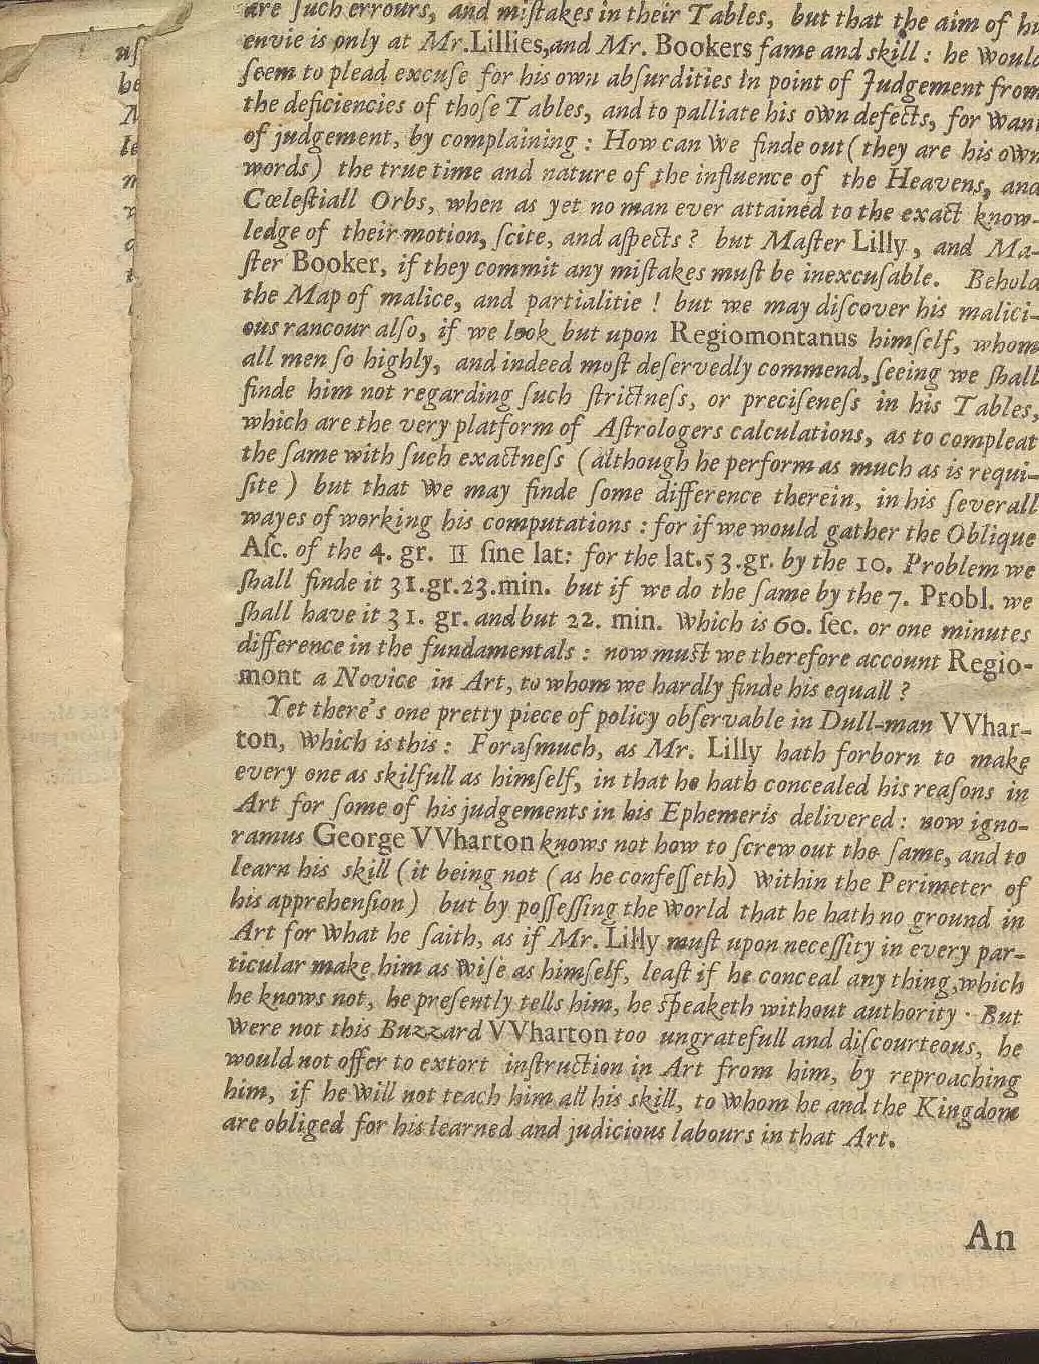 are ſuch errours, and miſtakes in their Tables, but that the aim of hi
envie is only at Mr.Lillies,and Mr. Bookers fame and skill : he would
ſeem to plead excuſe for his own abſurdities in point of Judgement from
the deficiencies of thoſe Tables, and to palliate his own defects, for want
of judgement, by complaining : How can we finde out (they are his own
words) the true time and nature of the influence of the Heavens, and
Cœleſtiall Orbs, when as yet no man ever attained to the exact know-
ledge of their motion, ſcite, and aſpects ? but Maſter Lilly, and Ma-
ſter Booker, if they commit any miſtakes muſt be inexcuſable. Behold
the Map of malice, and partialitie ! but we may diſcover his malici-
ous rancour alſo, if we look but upon Regiomontanus himſelf, whom
all men ſo highly, and indeed moſt deſervedly commend, ſeeing we ſhall
finde him not regarding ſuch ſtrictneſs, or preciſeneſs in his Tables,
which are the very platform of Aſtrologers calculations, as to compleat
the ſame with ſuch exactneſs (although he perform as much as is requi-
ſite ) but that we may finde ſome difference therein, in his ſeverall
wayes of working his computations : for if we would gather the Oblique
Aſc. of the 4. gr. ♊ ſine lat: for the lat.53.gr. by the 10. Problem we
ſhall finde it 31.gr.23.min. but if we do the ſame by the 7. Probl. we
ſhall have it 31. gr. and but 22. min. which is 60. ſec. or one minutes
difference in the fundamentals : now muſt we therefore account Regio-
mont a Novice in Art, to whom we hardly finde his equall ?
Yet there's one pretty piece of policy obſervable in Dull-man VVhar-
ton, which is this : Foraſmuch, as Mr. Lilly hath forborn to make
every one as skilfull as himſelf, in that he hath concealed his reaſons in
Art for ſome of his judgements in his Ephemeris delivered : now igno-
ramus George VVharton knows not how to ſcrew out the ſame, and to
learn his skill (it being not (as he confeſſeth) within the Perimeter of
his apprehenſion) but by poſſeſſing the world that he hath no ground in
Art for what he ſaith, as if Mr. Lilly muſt upon neceſſity in every par-
ticular make him as wiſe as himſelf, leaſt if he conceal any thing,which
he knows not, he preſently tells him, he ſpeaketh without authority. But
were not this Buzzard VVharton too ungratefull and diſcourteous, he
would not offer to extort inſtruction in Art from him, by reproaching
him, if he will not teach him all his skill, to whom he and the Kingdome
are obliged for his learned and judicious labours in that Art.
An